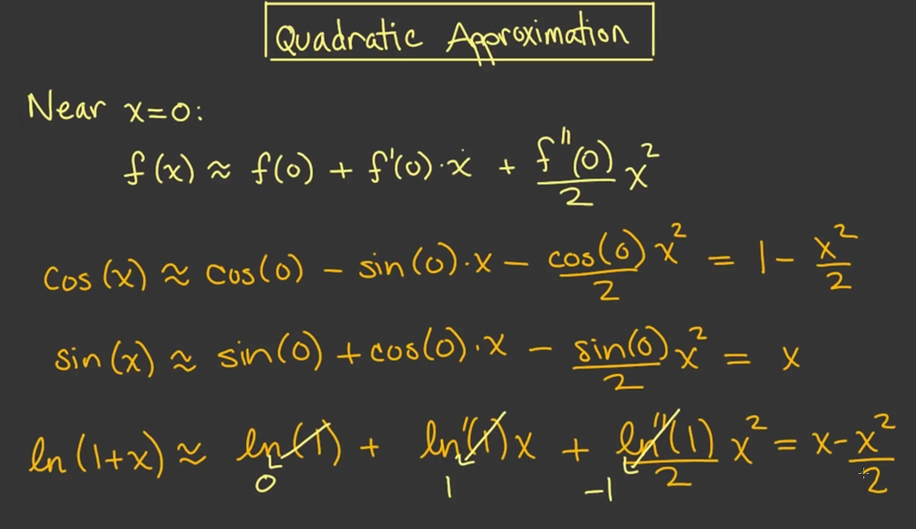 Quadratic Approximation
Near x=0:
f(x) ≈ f(0) + f'(0)·x + f''(0)/2 x²
cos(x) ≈ cos(0) − sin(0)·x − cos(0)/2 x² = 1 − x²/2
sin(x) ≈ sin(0) + cos(0)·x − sin(0)/2 x² = x
ln(1+x) ≈ ln(1) + ln'(1)x + ln''(1)/2 x² = x − x²/2
0 1 −1